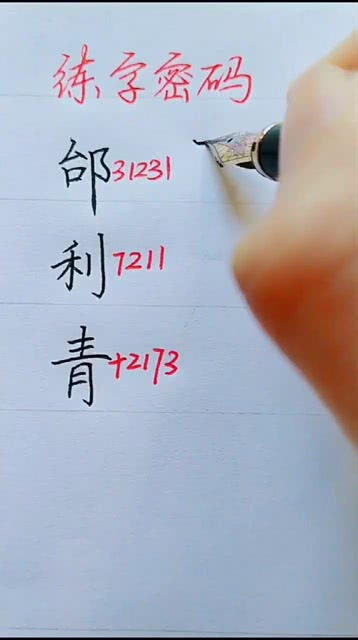 练字密码
邰31231
利7211
青+2173